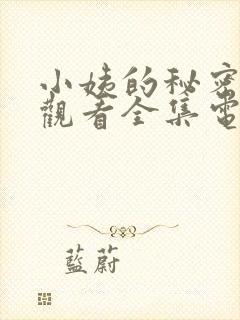 小姨的秘密
觀看全集電
藍蔚